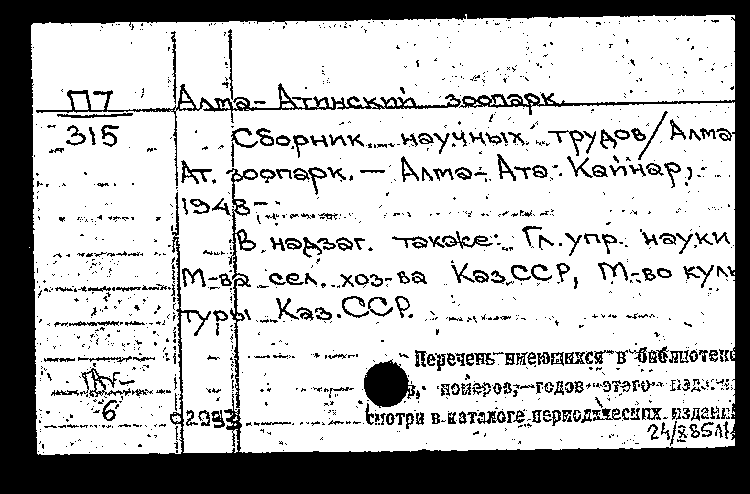 П7
315
Алма-Атинский зоопарк.
Сборник научных трудов/Алма-
Ат. зоопарк. — Алма-Ата: Кайнар,
1948-
В надзаг. также: Гл. упр. науки
М-ва сел. хоз-ва Каз.ССР, М-во куль
туры Каз.ССР.
Перечень имеющихся в библиотеке
в, номеров, годов этого издани
смотри в каталоге периодических издани
6
02093